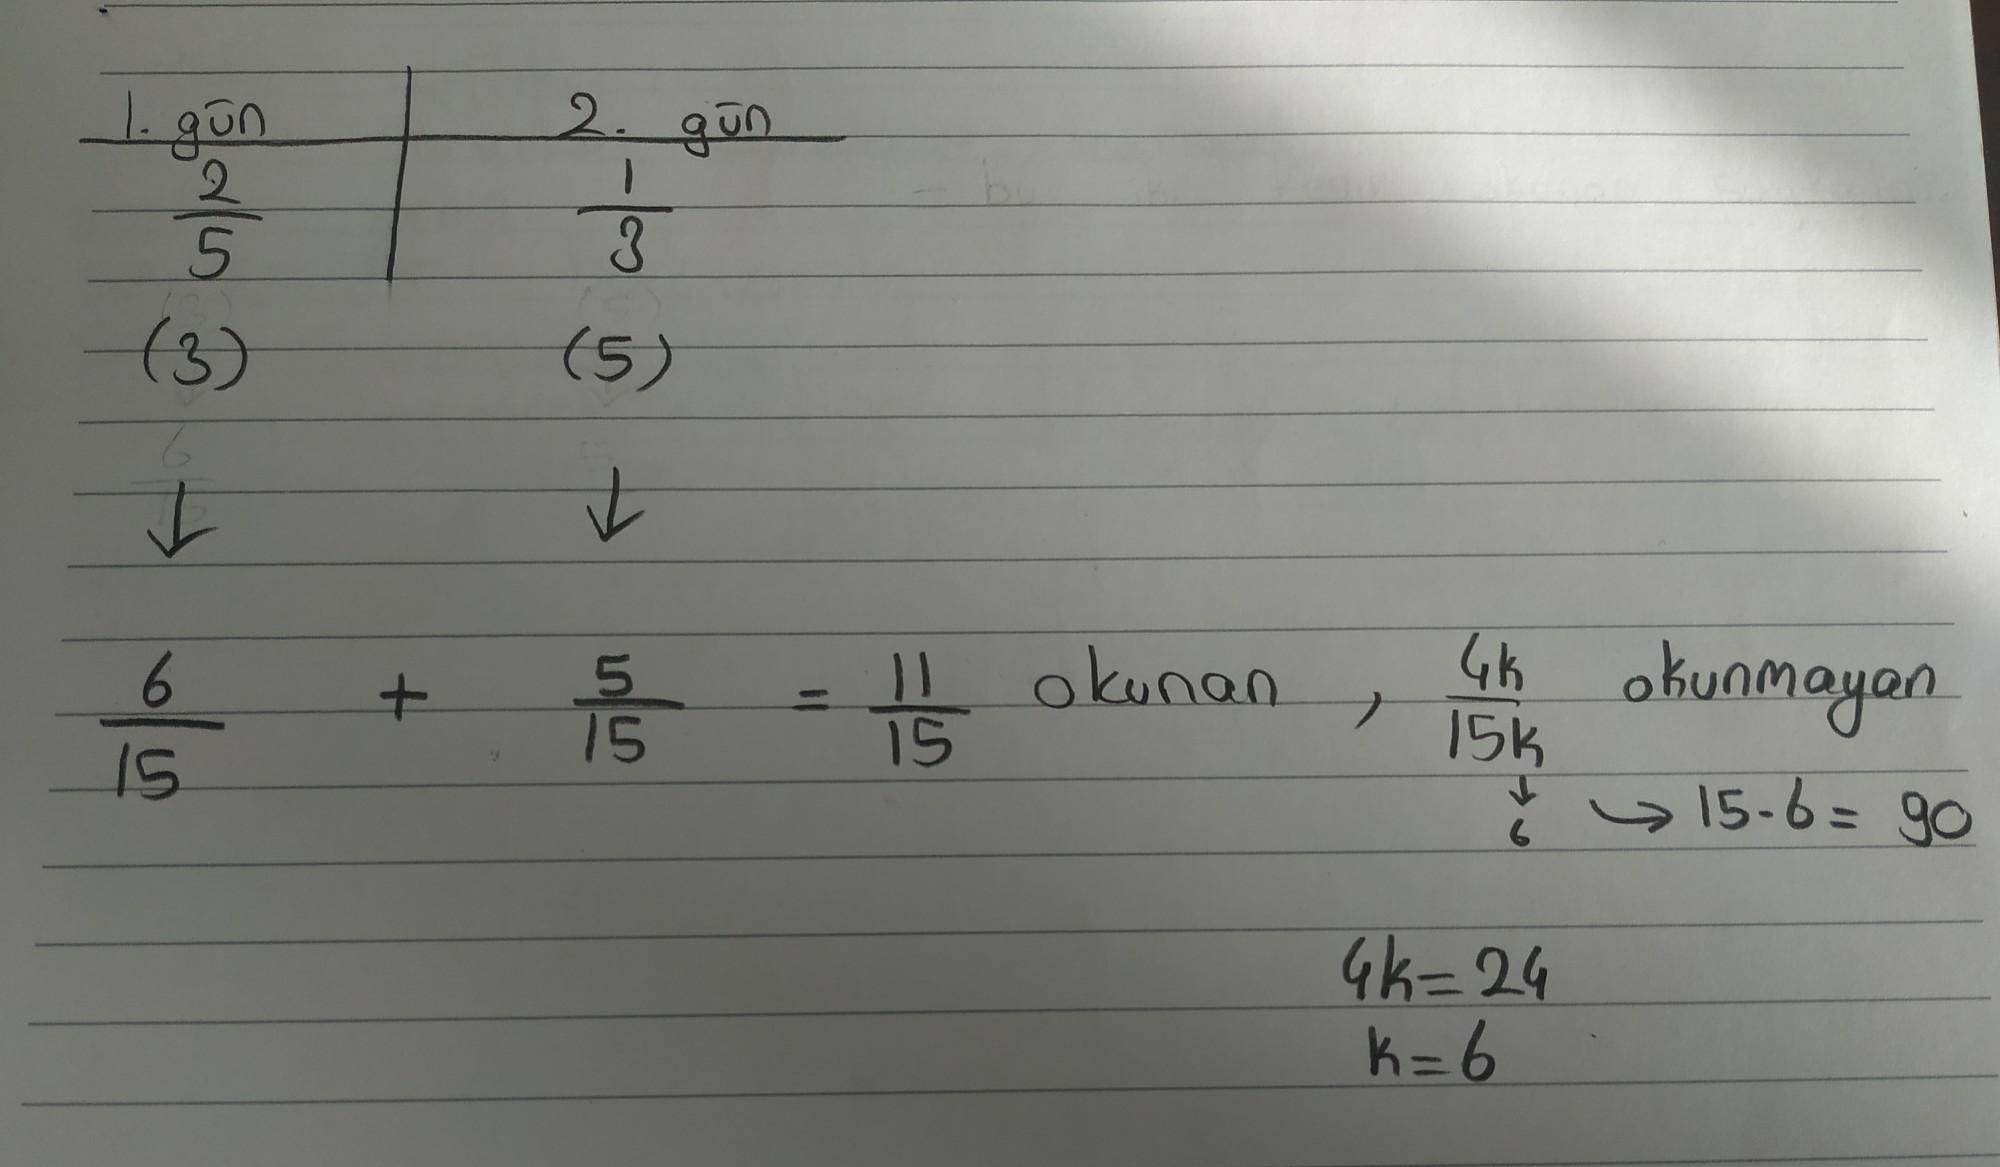 1. gün 2. gün
2/5 1/3
(3) (5)
↓ ↓
6/15 + 5/15 = 11/15 okunan, 4k/15k okunmayan
↓ 6 → 15.6 = 90
4k=24
k=6